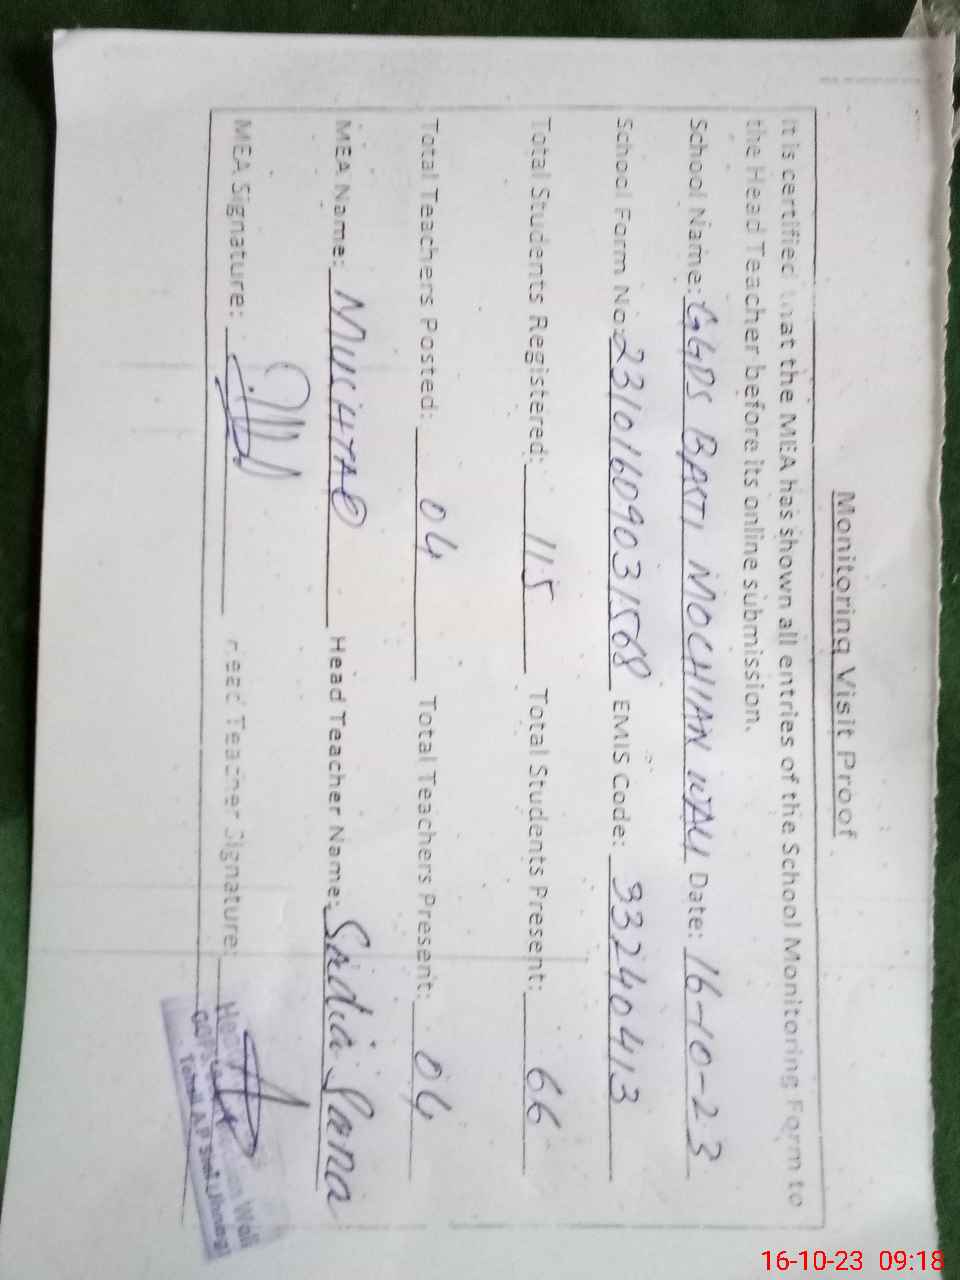 Monitoring Visit Proof
It is certified that the MEA has shown all entries of the School Monitoring Form to
the Head Teacher before its online submission.
School Name: GGPS BASTI MOCHIAN WALI Date: 16-10-23
School Form No: 23101609031568 EMIS Code: 33240413
Total Students Registered: 115 Total Students Present: 66
Total Teachers Posted: 04 Total Teachers Present: 04
MEA Name: MUKHTAR Head Teacher Name: Sadia Sana
MEA Signature: Head Teacher Signature:
Wali
16-10-23 09:18